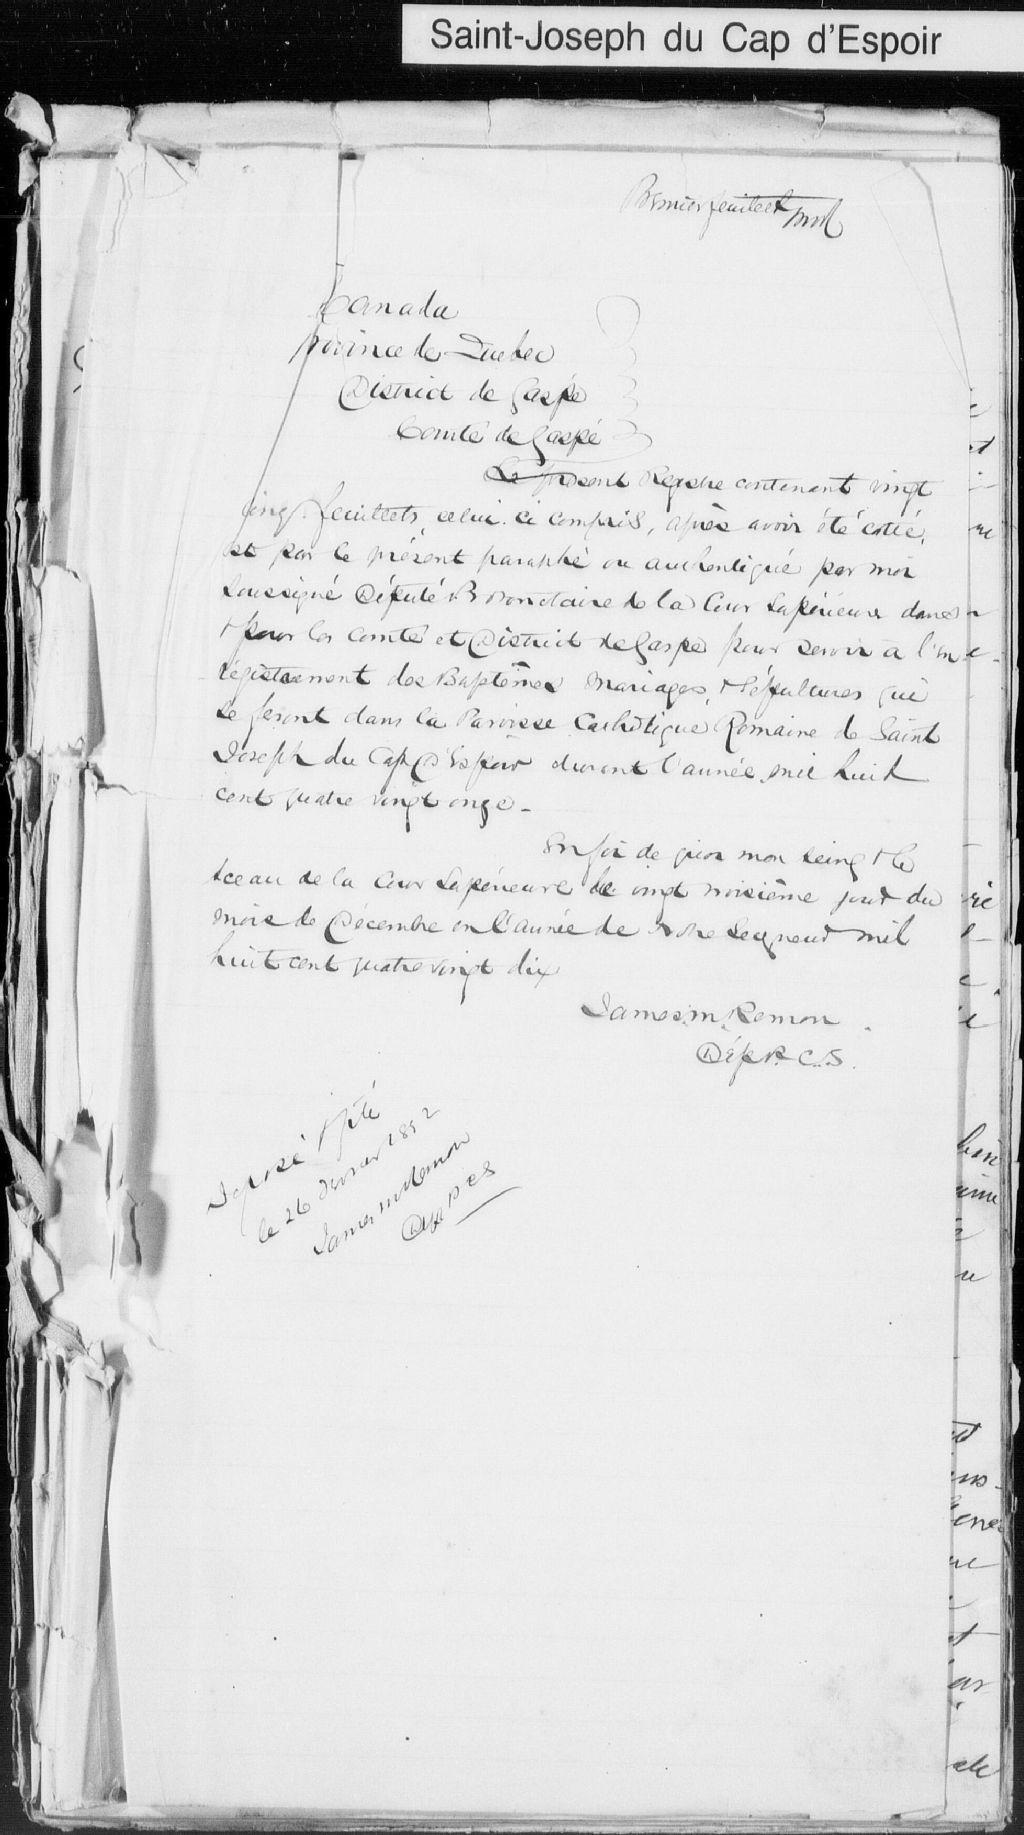 Saint-Joseph du Cap d'Espoir
Premier feuillet
Canada
Province de Quebec
District de Gaspé
Comté de Gaspé
Le présent Registre contenant vingt
cinq feuillets, celui ci compris, après avoir été coté,
est par le présent paraphé ou authentiqué par moi
soussigné Député Protonotaire de la Cour Supérieure dans
+ pour les Comté et District de Gaspé pour servir à l'en
régistrement des Baptêmes Mariages + Sépultures qui
se feront dans la Paroisse Catholique Romaine de Saint
Joseph du Cap D'Espoir durant l'année mil huit
cent quatre vingt onze -
En foi de quoi mon seing + le
sceau de la Cour Supérieure le vingt troisième jour du
mois de Décembre en l'année de Notre Seigneur mil
huit cent quatre vingt dix
James M. Remon
Dép P. C. S.
Déposé + filé
le 26 1892
James M Remon
Dép P C S